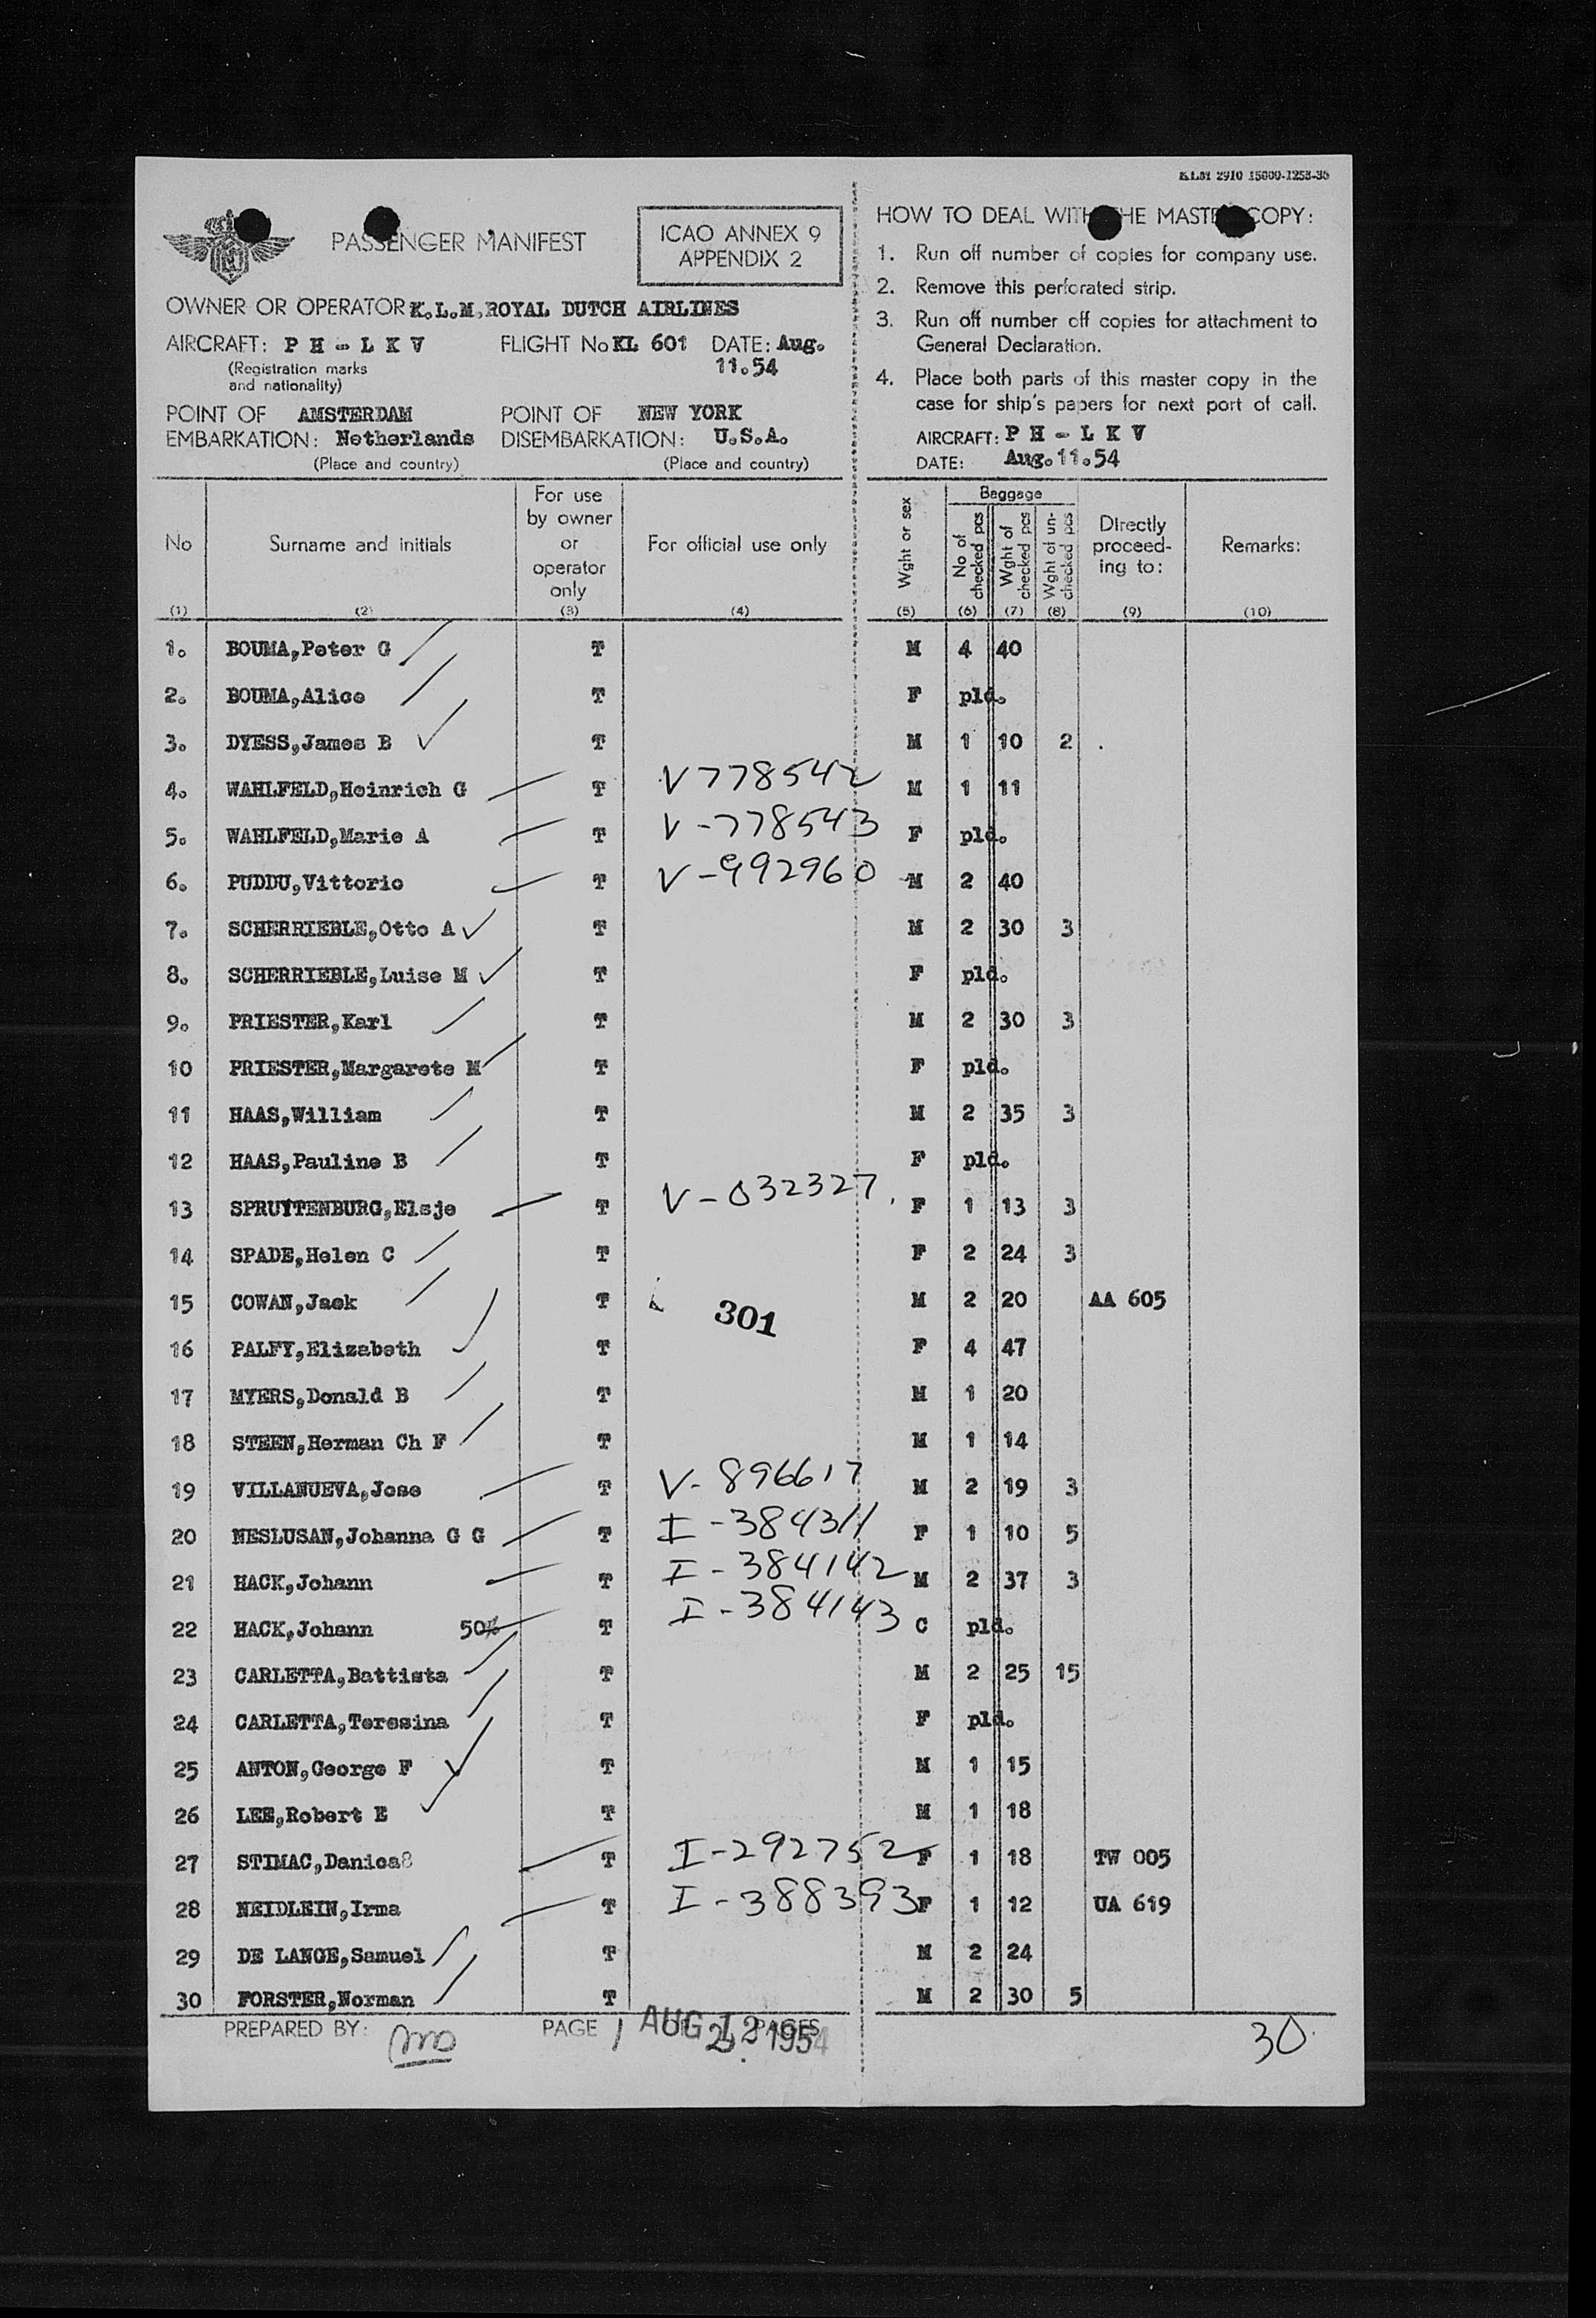 KLM 2910 15000-1253-35
PASSENGER MANIFEST
ICAO ANNEX 9
APPENDIX 2
OWNER OR OPERATOR K.L.M. ROYAL DUTCH AIRLINES
AIRCRAFT: P H - L K V FLIGHT No KL 601 DATE: Aug. 11.54
(Registration marks
and nationality)
POINT OF EMBARKATION: AMSTERDAM Netherlands
(Place and country)
POINT OF DISEMBARKATION: NEW YORK U.S.A.
(Place and country)
HOW TO DEAL WITH THE MASTER COPY:
1. Run off number of copies for company use.
2. Remove this perforated strip.
3. Run off number off copies for attachment to
General Declaration.
4. Place both parts of this master copy in the
case for ship's papers for next port of call.
AIRCRAFT: P H - L K V
DATE: Aug.11.54
No (1)
Surname and initials (2)
For use by owner or operator only (3)
For official use only (4)
Wght or sex (5)
Baggage
No of checked pcs (6)
Wght of checked pcs (7)
Wght of un-checked pcs (8)
Directly proceed-ing to: (9)
Remarks: (10)
1. BOUMA,Peter G T M 4 40
2. BOUMA,Alice T F pld.
3. DYESS,James B T M 1 10 2
4. WAHLFELD,Heinrich G T V778542 M 1 11
5. WAHLFELD,Marie A T V-778543 F pld.
6. PUDDU,Vittorio T V-992960 M 2 40
7. SCHERRIEBLE,Otto A T M 2 30 3
8. SCHERRIEBLE,Luise M T F pld.
9. PRIESTER,Karl T M 2 30 3
10 PRIESTER,Margarete M T F pld.
11 HAAS,William T M 2 35 3
12 HAAS,Pauline B T F pld.
13 SPRUYTENBURG,Elsje T V-032327 F 1 13 3
14 SPADE,Helen C T F 2 24 3
15 COWAN,Jack T 301 M 2 20 AA 605
16 PALFY,Elizabeth T F 4 47
17 MYERS,Donald B T M 1 20
18 STEEN,Herman Ch F T M 1 14
19 VILLANUEVA,Jose T V-896617 M 2 19 3
20 NESLUSAN,Johanna G G T I-384311 F 1 10 5
21 HACK,Johann T I-384142 M 2 37 3
22 HACK,Johann 50% T I-384143 C pld.
23 CARLETTA,Battista T M 2 25 15
24 CARLETTA,Teresina T F pld.
25 ANTON,George F T M 1 15
26 LEE,Robert E T M 1 18
27 STIMAC,Danica T I-292752 F 1 18 TW 005
28 NEIDLEIN,Irma T I-388393 F 1 12 UA 619
29 DE LANGE,Samuel T M 2 24
30 FORSTER,Norman T M 2 30 5
PREPARED BY: PAGE 1 PAGES
AUG 12 1954
30